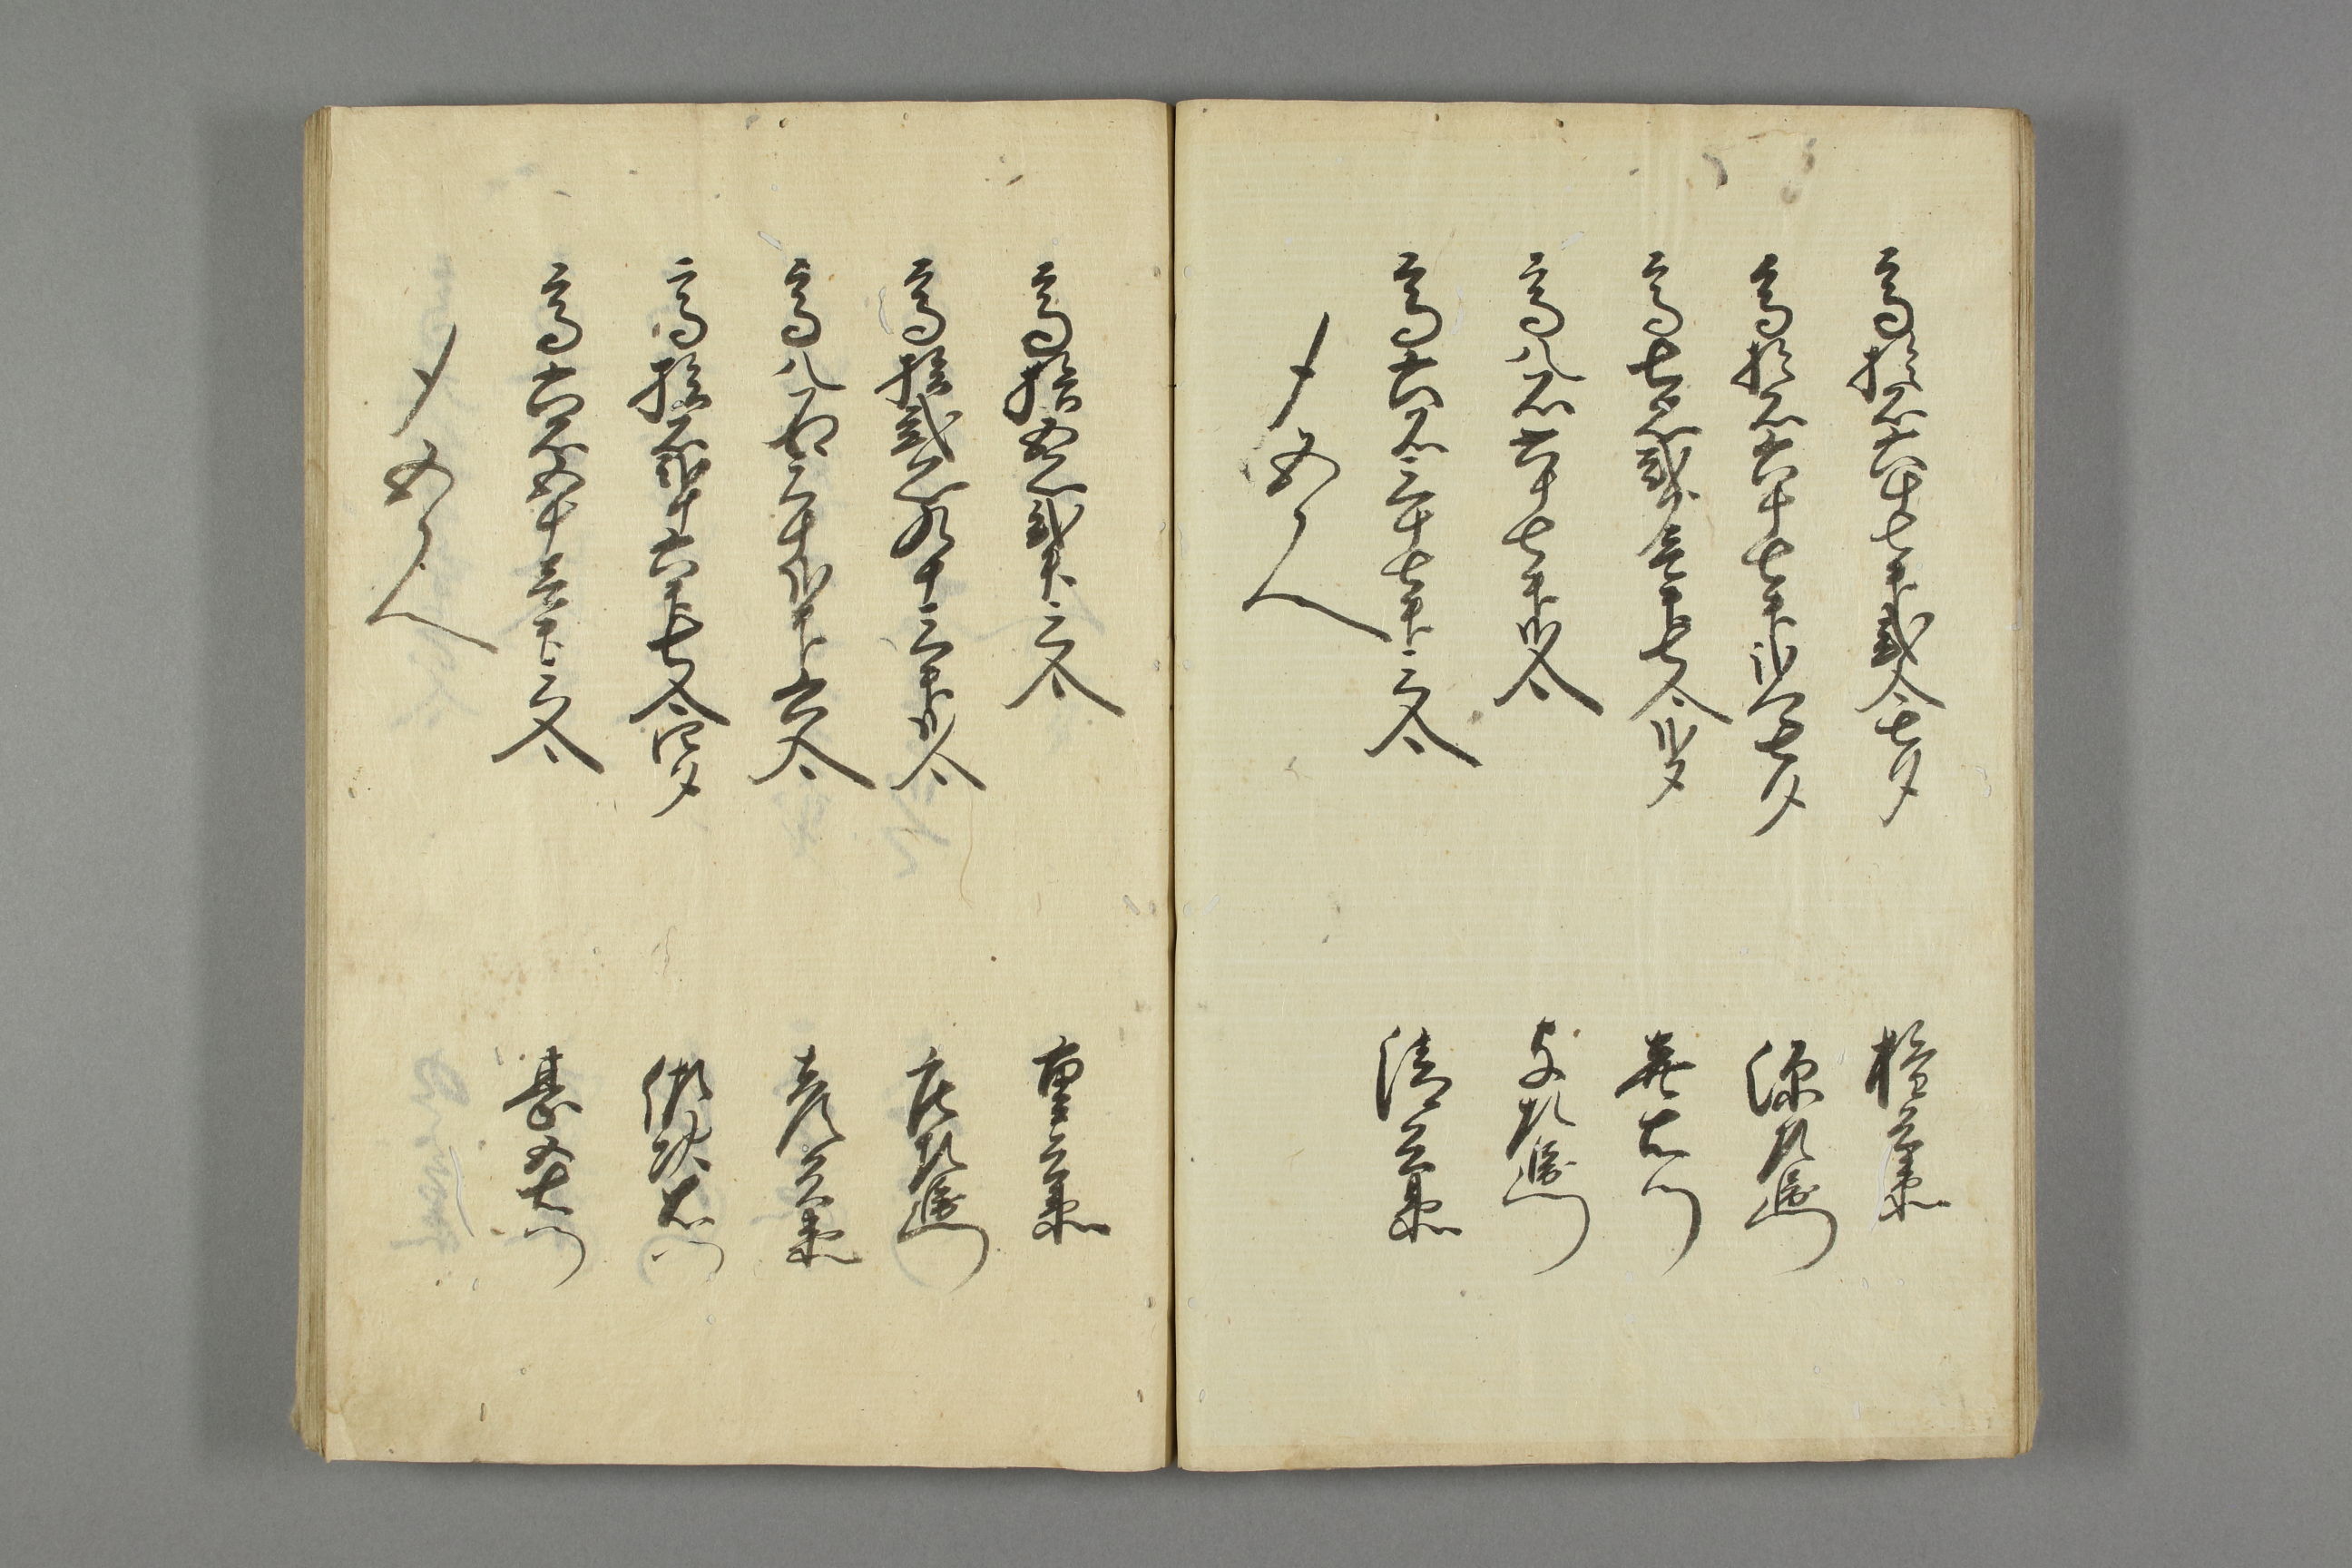 高拾石六斗七升弐合七夕
権兵衛
高拾石六斗七升弐合七夕
源左衛門
高七石弐斗壱升七合弐夕
高八石六斗七升弐合
与左衛門
高六石三斗七升三合
清兵衛
〆五人
高拾五石弐升三合
重兵衛
高拾弐石九斗三升弐合
庄左衛門
高八石三斗弐升六合
彦兵衛
高拾石弐斗六升七合四夕
高六石五斗壱升三合
甚五右衛門
〆五人